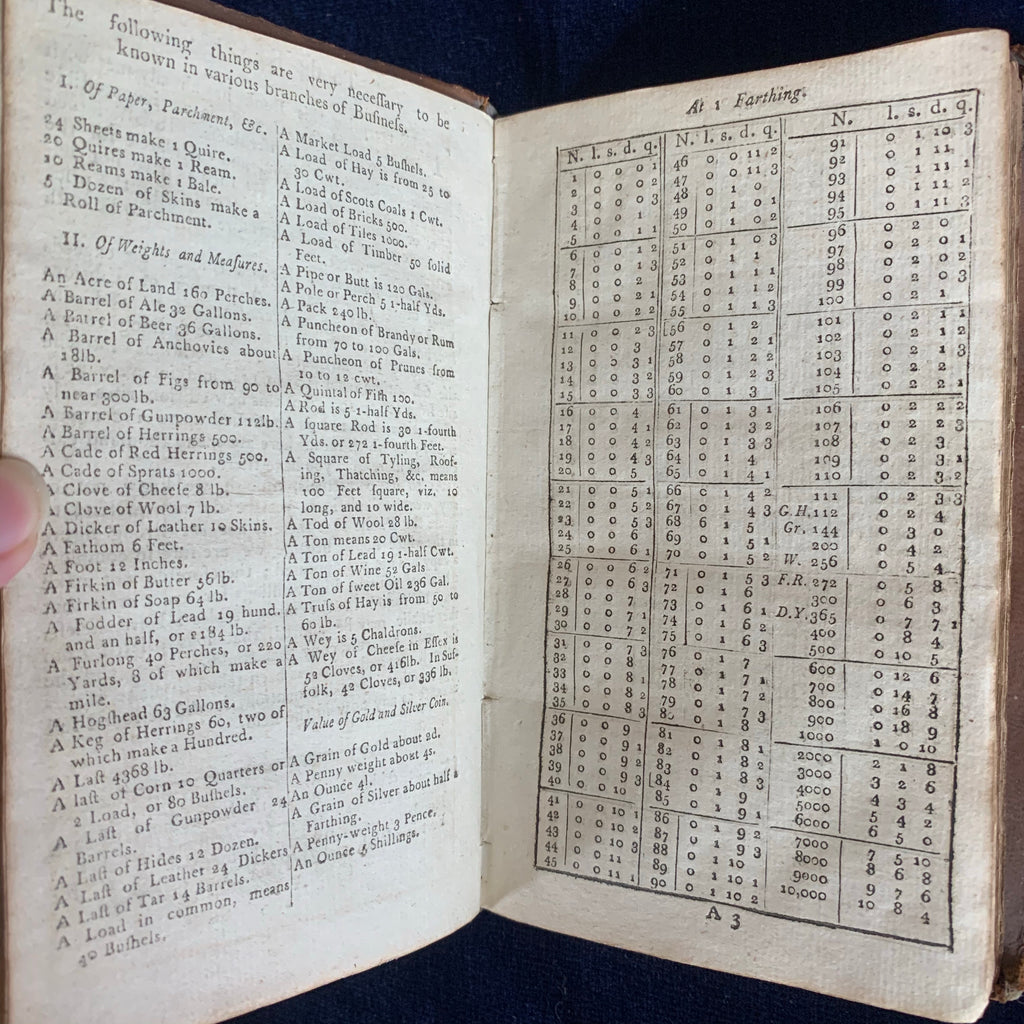 The following things are very neceſſary to be
known in various branches of Buſineſs.
I. Of Paper, Parchment, &c.
24 Sheets make 1 Quire.
20 Quires make 1 Ream.
10 Reams make 1 Bale.
5 Dozen of Skins make a
Roll of Parchment.
II. Of Weights and Meaſures.
An Acre of Land 160 Perches.
A Barrel of Ale 32 Gallons.
A Barrel of Beer 36 Gallons.
A Barrel of Anchovies about
18lb.
A Barrel of Figs from 90 to
near 300lb.
A Barrel of Gunpowder 112lb.
A Barrel of Herrings 500.
A Cade of Red Herrings 500.
A Cade of Sprats 1000.
A Clove of Cheeſe 8 lb.
A Clove of Wool 7 lb.
A Dicker of Leather 10 Skins.
A Fathom 6 Feet.
A Foot 12 Inches.
A Firkin of Butter 56lb.
A Firkin of Soap 64 lb.
A Fodder of Lead 19 hund.
and an half, or 2184 lb.
A Furlong 40 Perches, or 220
Yards, 8 of which make a
mile.
A Hogſhead 63 Gallons.
A Keg of Herrings 60, two of
which make a Hundred.
A Laſt 4368 lb.
A laſt of Corn 10 Quarters or
2 Load, or 80 Buſhels.
A Laſt of Gunpowder 24
Barrels.
A Laſt of Hides 12 Dozen.
A Laſt of Leather 24 Dickers
A Laſt of Tar 14 Barrels.
A Load in common, means
40 Buſhels.
A Market Load 5 Buſhels.
A Load of Hay is from 25 to
30 Cwt.
A Load of Scots Coals 1 Cwt.
A Load of Bricks 500.
A Load of Tiles 1000.
A Load of Timber 50 ſolid
Feet.
A Pipe or Butt is 120 Gals.
A Pole or Perch 5 1-half Yds.
A Pack 240lb.
A Puncheon of Brandy or Rum
from 70 to 100 Gals.
A Puncheon of Prunes from
10 to 12 cwt.
A Quintal of Fiſh 100.
A Rod is 5 1-half Yds.
A ſquare Rod is 30 1-fourth
Yds. or 272 1-fourth Feet.
A Square of Tyling, Roof-
ing, Thatching, &c. means
100 Feet ſquare, viz. 10
long, and 10 wide.
A Tod of Wool 28 lb.
A Ton means 20 Cwt.
A Ton of Lead 19 1-half Cwt.
A Ton of Wine 52 Gals
A Ton of ſweet Oil 236 Gal.
A Truſs of Hay is from 50 to
60 lb.
A Wey is 5 Chaldrons.
A Wey of Cheeſe in Eſſex is
52 Cloves, or 416lb. In Suf-
folk, 42 Cloves, or 336 lb.
Value of Gold and Silver Coin.
A Grain of Gold about 2d.
A Penny weight about 4s.
An Ounce 4l.
A Grain of Silver about half a
Farthing.
A Penny-weight 3 Pence.
An Ounce 5 Shillings.
At 1 Farthing.
N. l. s. d. q.
1 0 0 0 1
2 0 0 0 2
3 0 0 0 3
4 0 0 1
5 0 0 1 1
6 0 0 1 2
7 0 0 1 3
8 0 0 2
9 0 0 2 1
10 0 0 2 2
11 0 0 2 3
12 0 0 3
13 0 0 3 1
14 0 0 3 2
15 0 0 3 3
16 0 0 4
17 0 0 4 1
18 0 0 4 2
19 0 0 4 3
20 0 0 5
21 0 0 5 1
22 0 0 5 2
23 0 0 5 3
24 0 0 6
25 0 0 6 1
26 0 0 6 2
27 0 0 6 3
28 0 0 7
29 0 0 7 1
30 0 0 7 2
31 0 0 7 3
32 0 0 8
33 0 0 8 1
34 0 0 8 2
35 0 0 8 3
36 0 0 9
37 0 0 9 1
38 0 0 9 2
39 0 0 9 3
40 0 0 10
41 0 0 10 1
42 0 0 10 2
43 0 0 10 3
44 0 0 11
45 0 0 11 1
N. l. s. d. q.
46 0 0 11 2
47 0 0 11 3
48 0 1 0
49 0 1 0 1
50 0 1 0 2
51 0 1 0 3
52 0 1 1
53 0 1 1 1
54 0 1 1 2
55 0 1 1 3
56 0 1 2
57 0 1 2 1
58 0 1 2 2
59 0 1 2 3
60 0 1 3
61 0 1 3 1
62 0 1 3 2
63 0 1 3 3
64 0 1 4
65 0 1 4 1
66 0 1 4 2
67 0 1 4 3
68 0 1 5
69 0 1 5 1
70 0 1 5 2
71 0 1 5 3
72 0 1 6
73 0 1 6 1
74 0 1 6 2
75 0 1 6 3
76 0 1 7
77 0 1 7 1
78 0 1 7 2
79 0 1 7 3
80 0 1 8
81 0 1 8 1
82 0 1 8 2
83 0 1 8 3
84 0 1 9
85 0 1 9 1
86 0 1 9 2
87 0 1 9 3
88 0 1 10
89 0 1 10 1
90 0 1 10 2
N. l. s. d. q.
91 0 1 10 3
92 0 1 11
93 0 1 11 1
94 0 1 11 2
95 0 1 11 3
96 0 2 0
97 0 2 0 1
98 0 2 0 2
99 0 2 0 3
100 0 2 1
101 0 2 1 1
102 0 2 1 2
103 0 2 1 3
104 0 2 2
105 0 2 2 1
106 0 2 2 2
107 0 2 2 3
108 0 2 3
109 0 2 3 1
110 0 2 3 2
111 0 2 3 3
G.H. 112 0 2 4
Gr. 144 0 3 0
200 0 4 2
W. 256 0 5 4
F.R. 272 0 5 8
300 0 6 3
D.Y. 365 0 7 7 1
400 0 8 4
500 0 10 5
600 0 12 6
700 0 14 7
800 0 16 8
900 0 18 9
1000 1 0 10
2000 2 1 8
3000 3 2 6
4000 4 3 4
5000 5 4 2
6000 6 5 0
7000 7 5 10
8000 8 6 8
9000 9 7 6
10,000 10 8 4
A 3